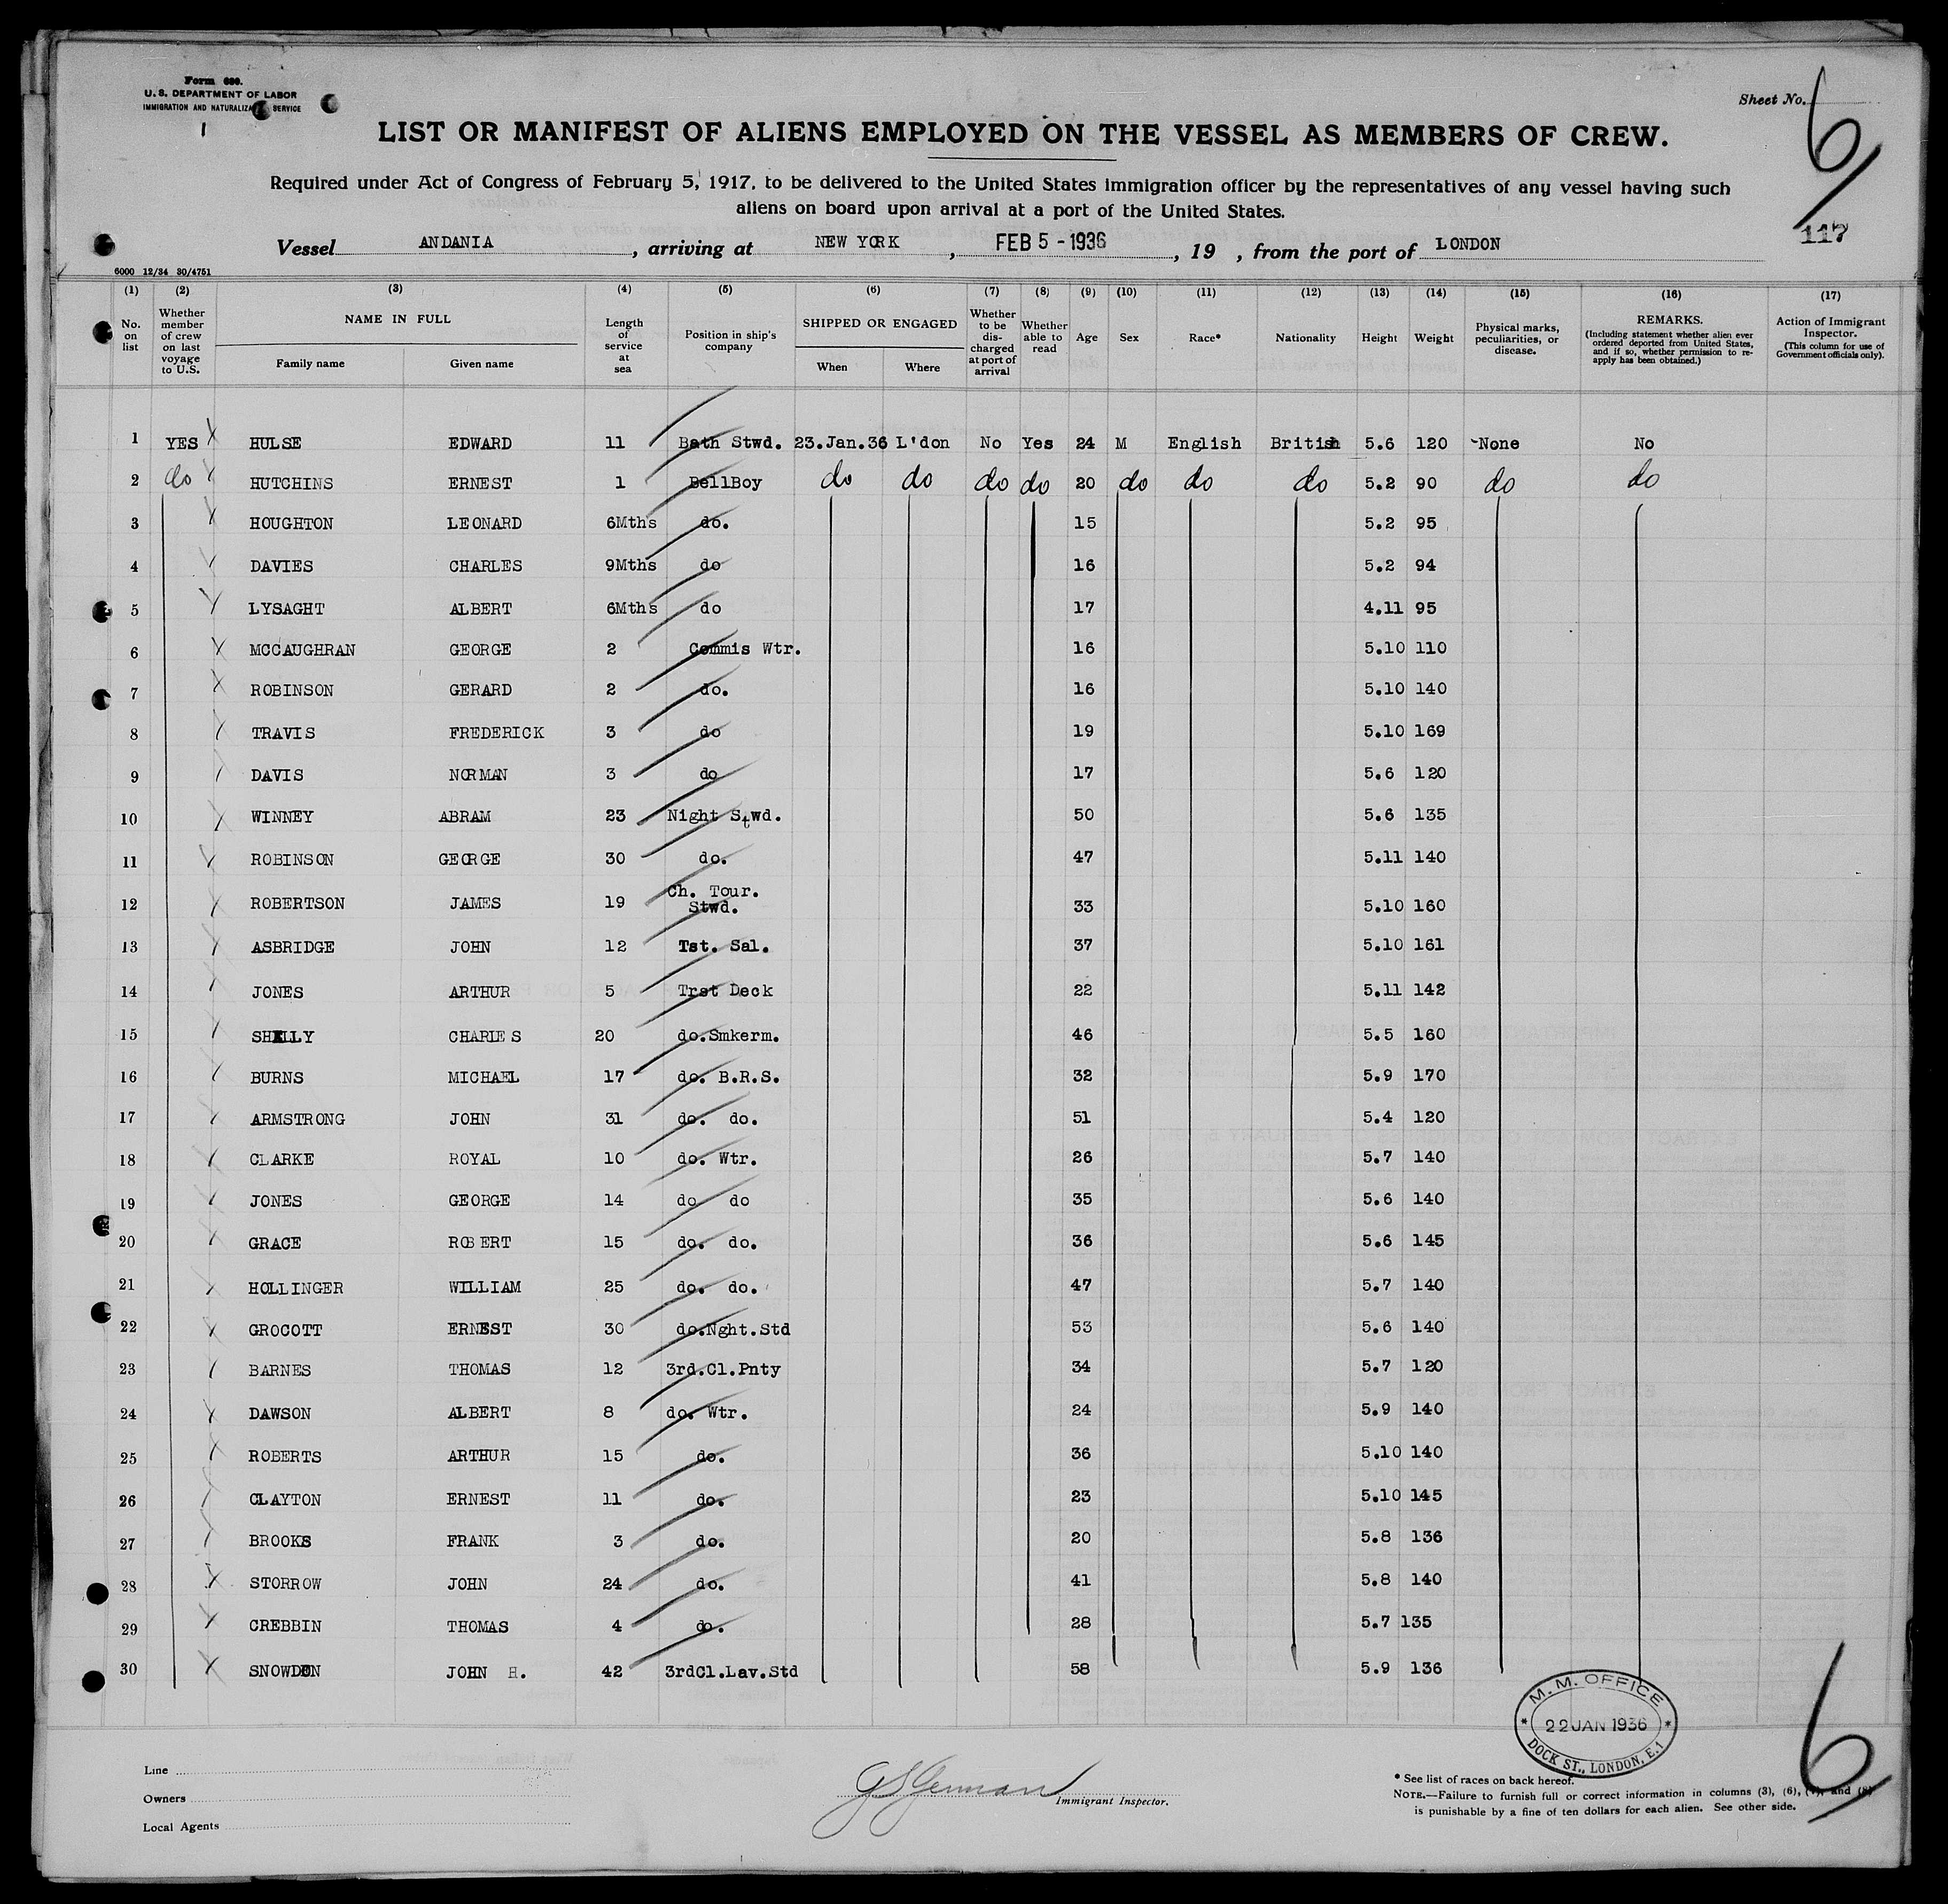 Form 680.
U. S. DEPARTMENT OF LABOR
IMMIGRATION AND NATURALIZATION SERVICE
1
Sheet No. 6
LIST OR MANIFEST OF ALIENS EMPLOYED ON THE VESSEL AS MEMBERS OF CREW.
Required under Act of Congress of February 5, 1917, to be delivered to the United States immigration officer by the representatives of any vessel having such
aliens on board upon arrival at a port of the United States.
117
Vessel ANDANIA, arriving at NEW YORK, FEB 5 - 1936, 19 , from the port of LONDON
6000 12/34 30/4751
(1) (2) (3) (4) (5) (6) (7) (8) (9) (10) (11) (12) (13) (14) (15) (16) (17)
No. on list
Whether member of crew on last voyage to U.S.
NAME IN FULL
Family name Given name
Length of service at sea
Position in ship's company
SHIPPED OR ENGAGED
When Where
Whether to be discharged at port of arrival
Whether able to read
Age Sex Race* Nationality Height Weight
Physical marks, peculiarities, or disease.
REMARKS.
(Including statement whether alien ever ordered deported from United States, and if so, whether permission to re-apply has been obtained.)
Action of Immigrant Inspector.
(This column for use of Government officials only).
1 YES HULSE EDWARD 11 Bath Stwd. 23.Jan.36 L'don No Yes 24 M English British 5.6 120 None No
2 do HUTCHINS ERNEST 1 BellBoy do do do do 20 do do do 5.2 90 do do
3 HOUGHTON LEONARD 6Mths do. 15 5.2 95
4 DAVIES CHARLES 9Mths do 16 5.2 94
5 LYSAGHT ALBERT 6Mths do 17 4.11 95
6 MCCAUGHRAN GEORGE 2 Commis Wtr. 16 5.10 110
7 ROBINSON GERARD 2 do. 16 5.10 140
8 TRAVIS FREDERICK 3 do 19 5.10 169
9 DAVIS NORMAN 3 do 17 5.6 120
10 WINNEY ABRAM 23 Night Stwd. 50 5.6 135
11 ROBINSON GEORGE 30 do. 47 5.11 140
12 ROBERTSON JAMES 19 Ch. Tour. Stwd. 33 5.10 160
13 ASBRIDGE JOHN 12 Tst. Sal. 37 5.10 161
14 JONES ARTHUR 5 Trst Deck 22 5.11 142
15 SHELLY CHARLES 20 do.Smkerm. 46 5.5 160
16 BURNS MICHAEL 17 do. B.R.S. 32 5.9 170
17 ARMSTRONG JOHN 31 do. do. 51 5.4 120
18 CLARKE ROYAL 10 do. Wtr. 26 5.7 140
19 JONES GEORGE 14 do do 35 5.6 140
20 GRACE ROBERT 15 do. do. 36 5.6 145
21 HOLLINGER WILLIAM 25 do. do. 47 5.7 140
22 GROCOTT ERNEST 30 do.Nght.Std 53 5.6 140
23 BARNES THOMAS 12 3rd.Cl.Pnty 34 5.7 120
24 DAWSON ALBERT 8 do. Wtr. 24 5.9 140
25 ROBERTS ARTHUR 15 do. 36 5.10 140
26 CLAYTON ERNEST 11 do. 23 5.10 145
27 BROOKS FRANK 3 do. 20 5.8 136
28 STORROW JOHN 24 do. 41 5.8 140
29 CREBBIN THOMAS 4 do. 28 5.7 135
30 SNOWDON JOHN H. 42 3rdCl.Lav.Std 58 5.9 136
M. M. OFFICE
22 JAN 1936
DOCK ST., LONDON, E.1
6
Line
Owners
Local Agents
Immigrant Inspector.
* See list of races on back hereof.
NOTE.—Failure to furnish full or correct information in columns (3), (6), (7), and (8)
is punishable by a fine of ten dollars for each alien. See other side.